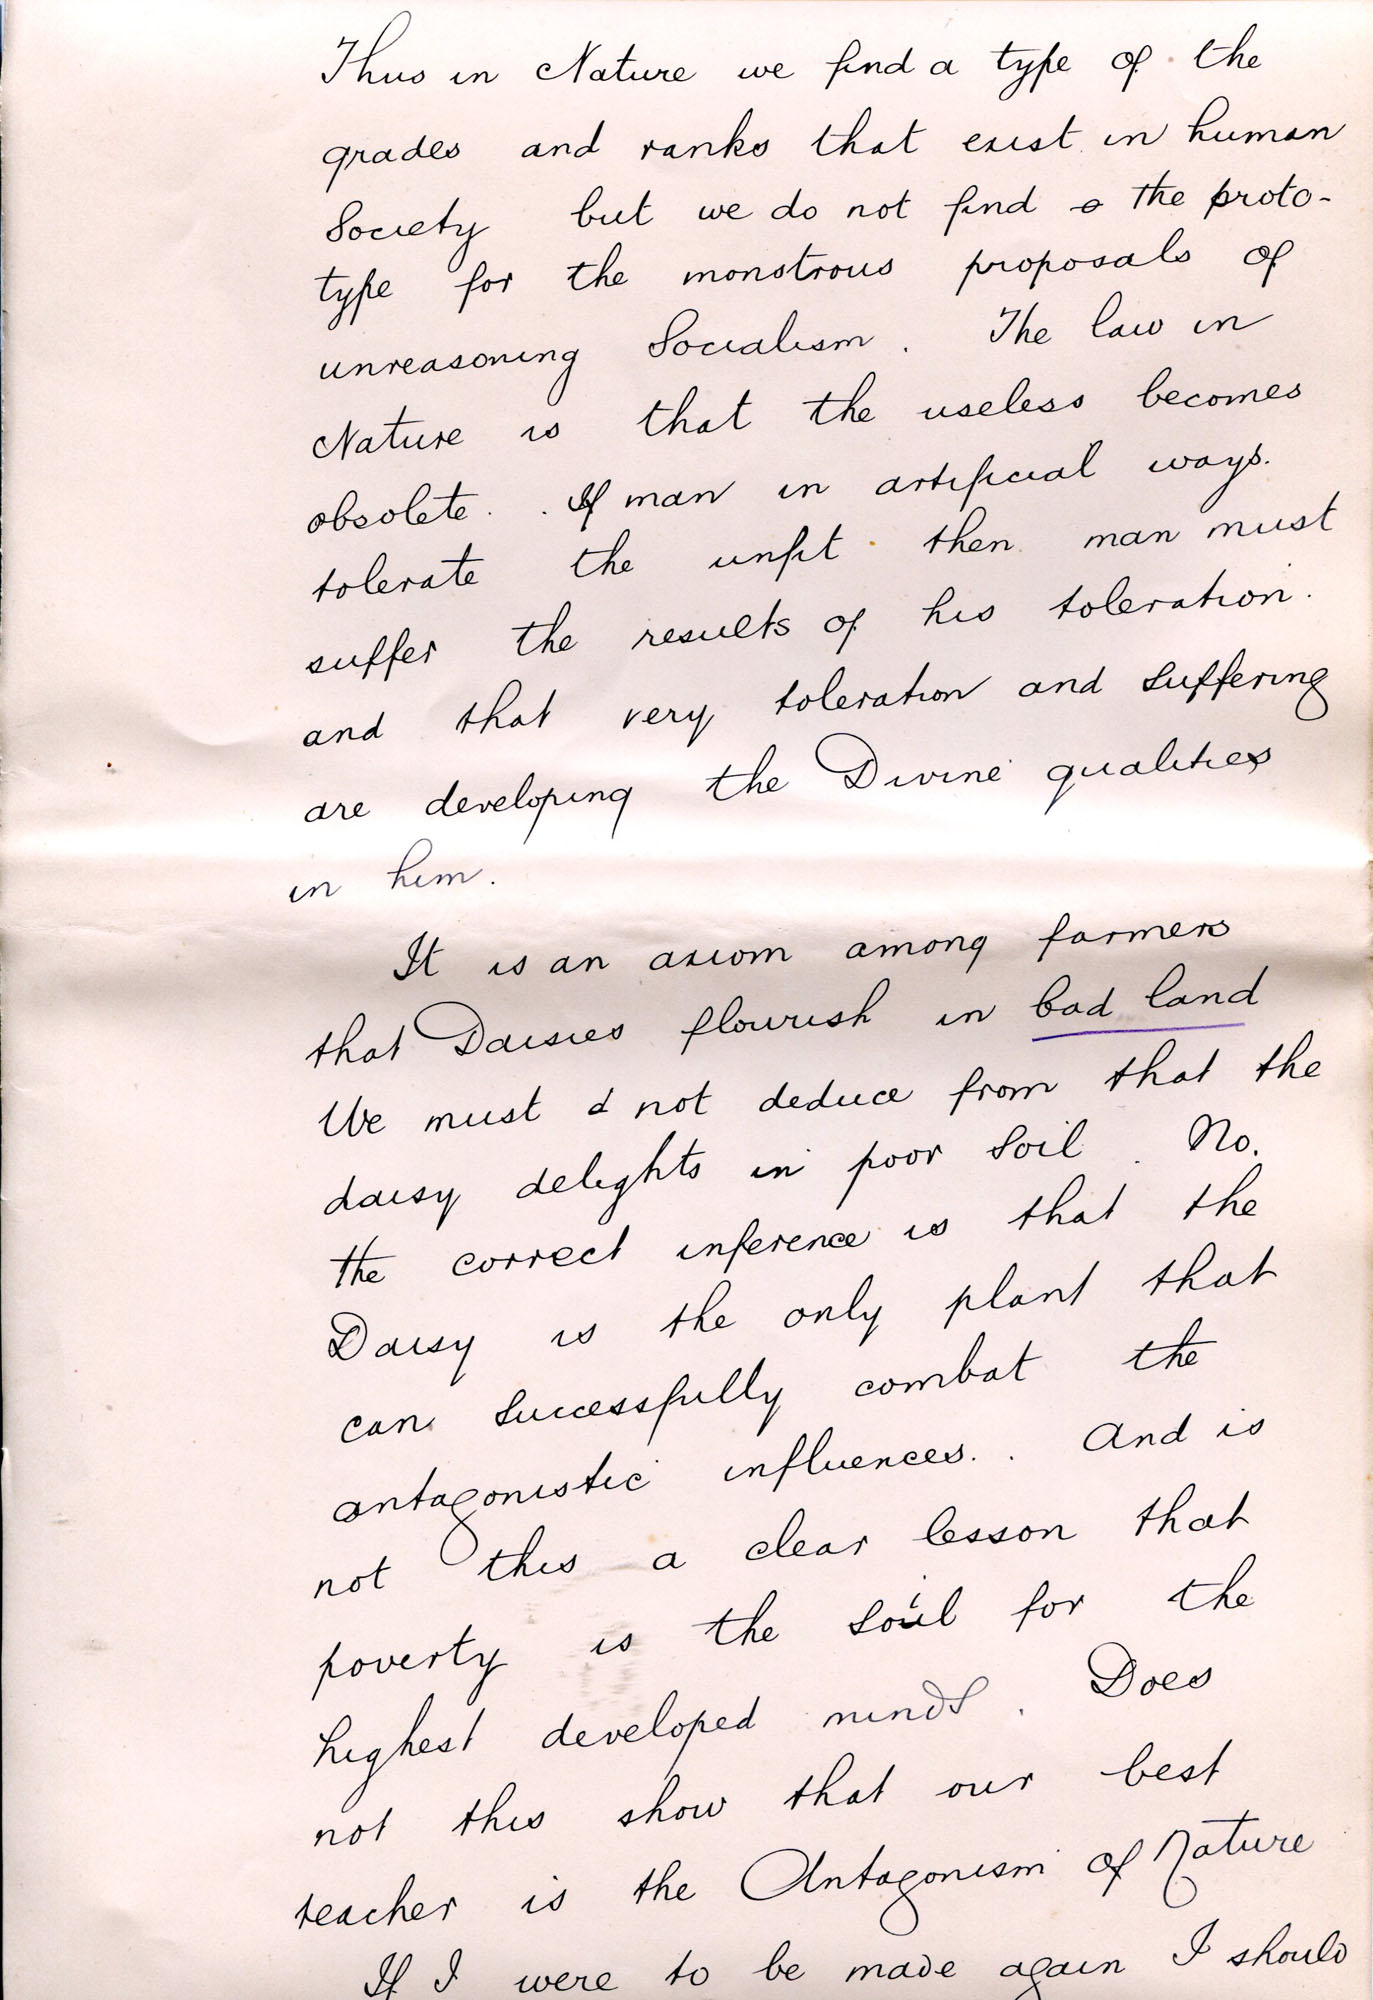 Thus in Nature we find a type of the
grades and ranks that exist in human
Society but we do not find the proto-
type for the monstrous proposals of
unreasoning Socialism. The law in
Nature is that the useless becomes
obsolete. If man in artificial ways.
tolerate the unfit then man must
suffer the results of his toleration.
and that very toleration and suffering
are developing the Divine qualities
in him.
It is an axiom among farmers
that Daisies flourish in bad land
We must d not deduce from that the
daisy delights in poor soil. No.
the correct inference is that the
Daisy is the only plant that
can successfully combat the
antagonistic influences. And is
not this a clear lesson that
poverty is the soil for the
highest developed minds. Does
not this show that our best
teacher is the Antagonism of Nature
If I were to be made again I should